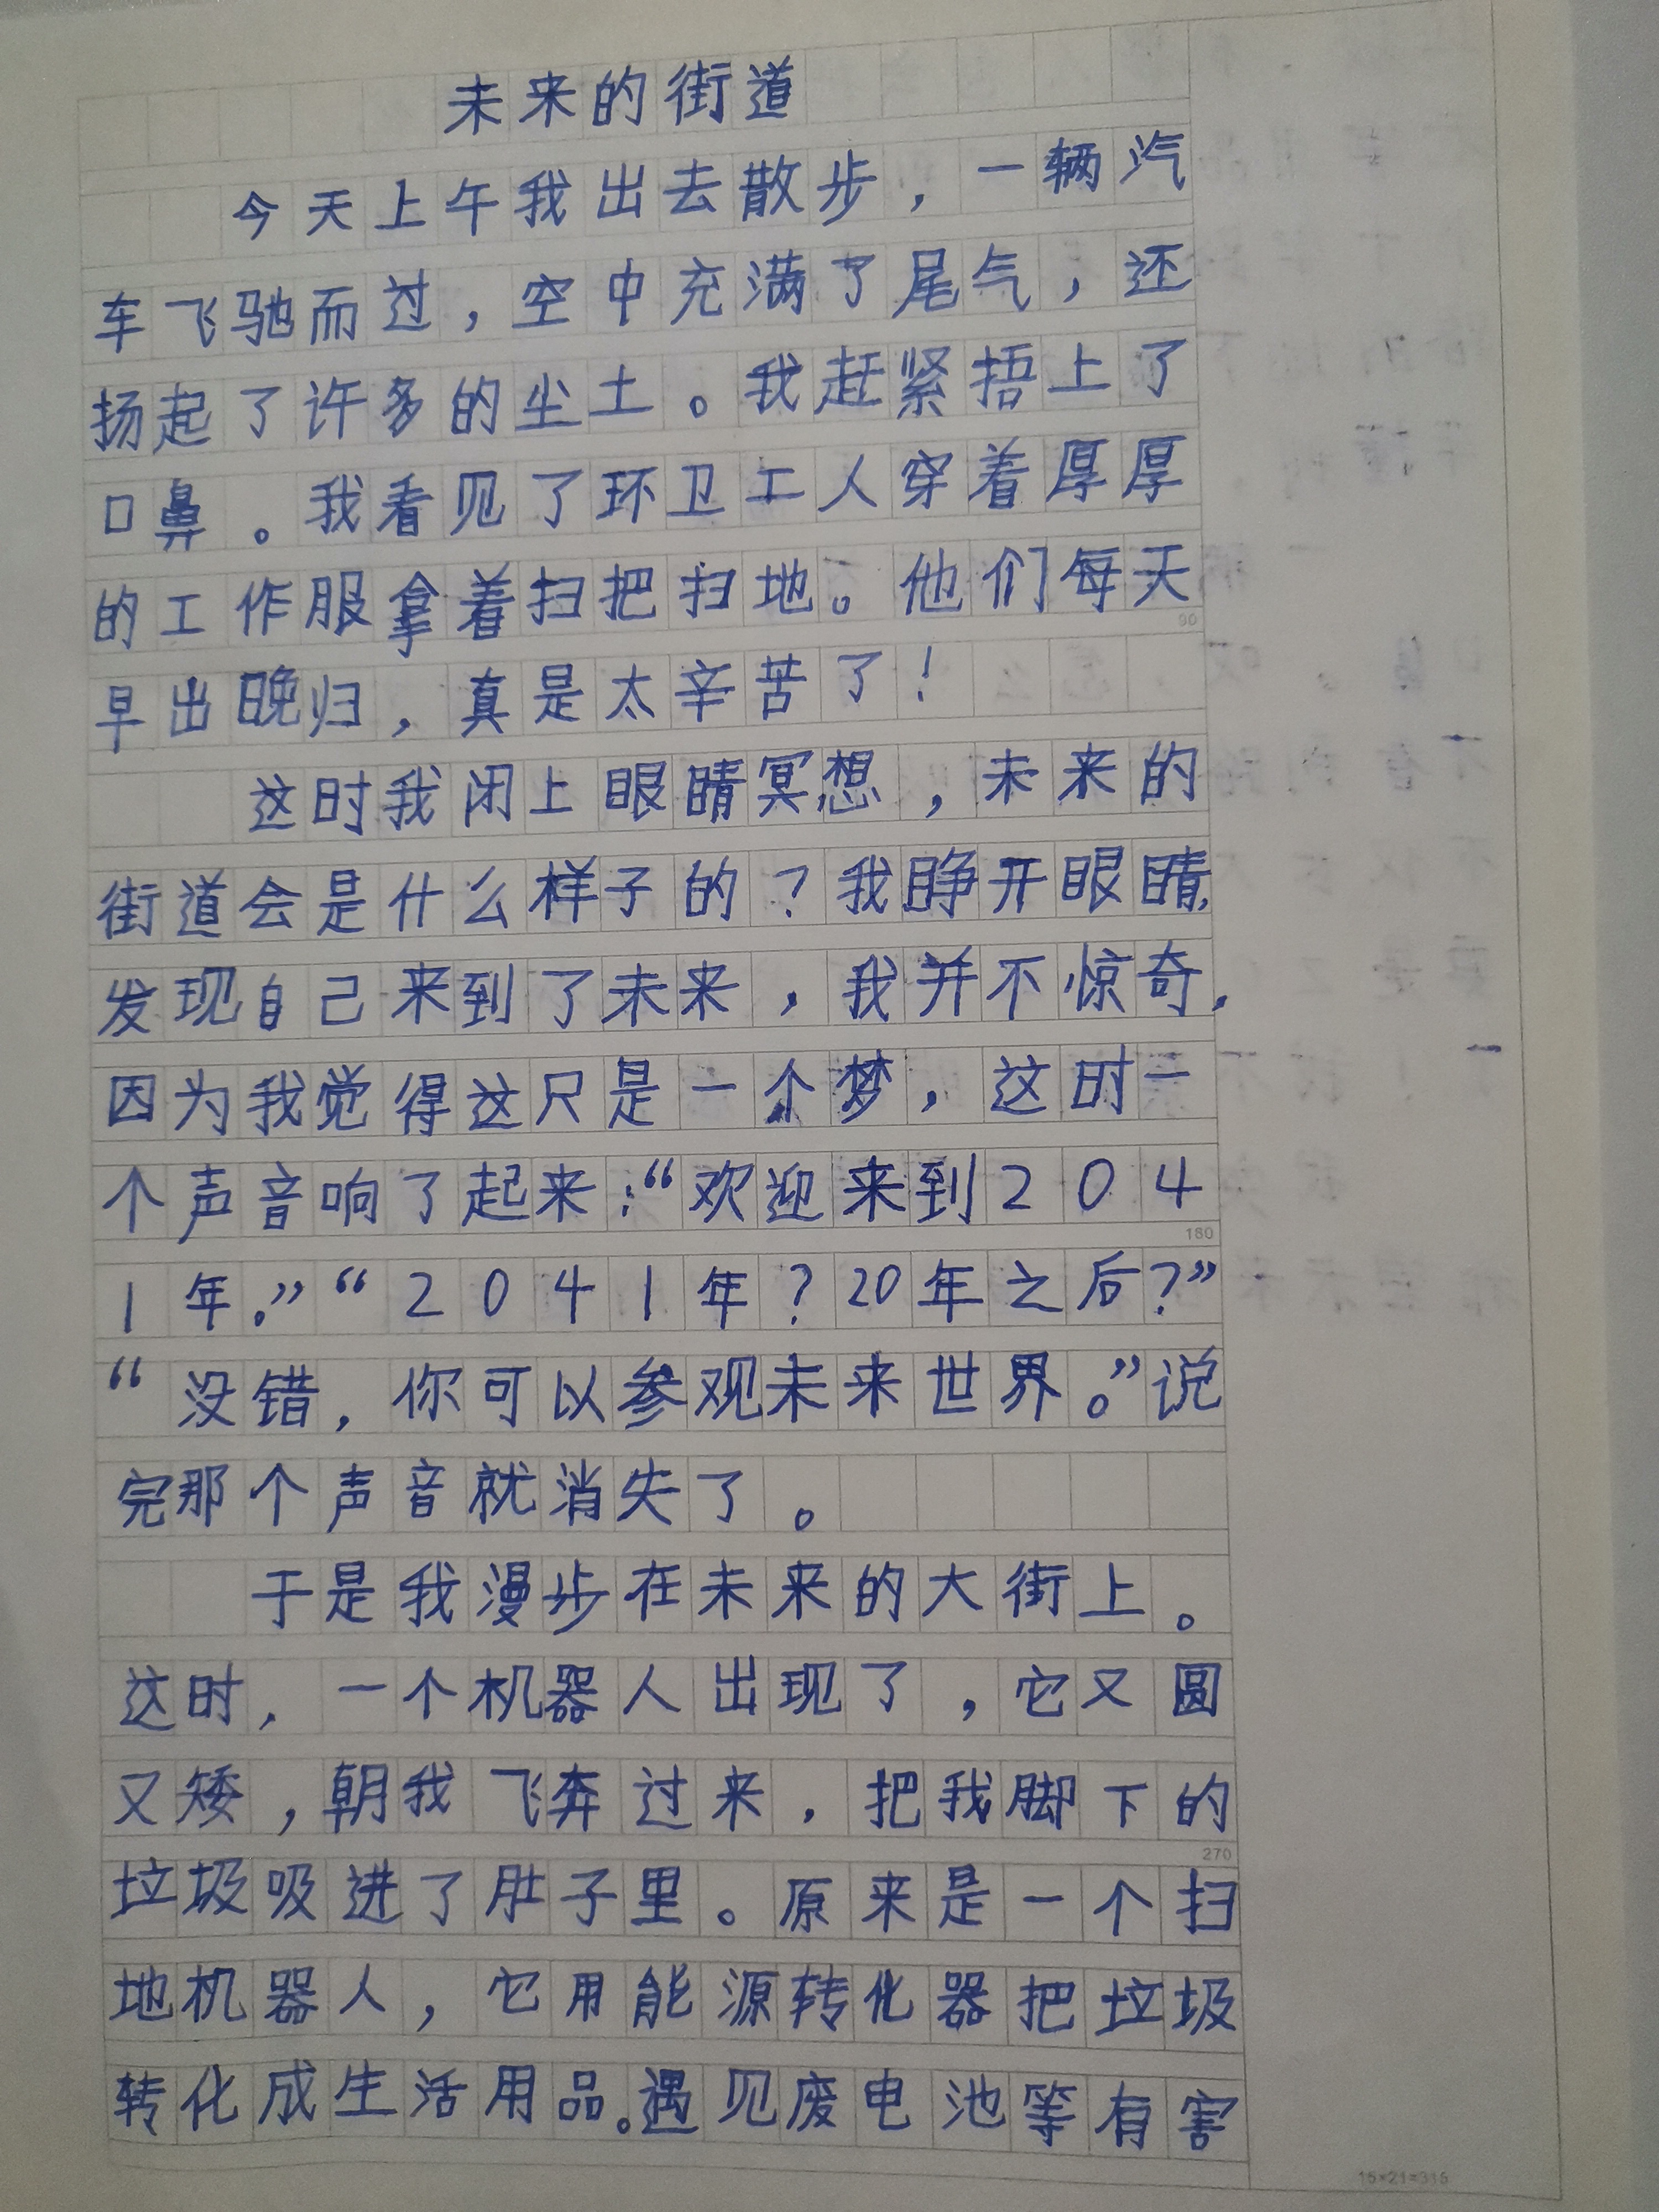 未来的街道
今天上午我出去散步，一辆汽
车飞驰而过，空中充满了尾气，还
扬起了许多的尘土。我赶紧捂上了
口鼻。我看见了环卫工人穿着厚厚
的工作服拿着扫把扫地。他们每天
90
早出晚归，真是太辛苦了！
这时我闭上眼睛冥想，未来的
街道会是什么样子的？我睁开眼睛，
发现自己来到了未来，我并不惊奇，
因为我觉得这只是一个梦，这时一
个声音响了起来：“欢迎来到204
180
1年。”“2041年？20年之后？”
“没错，你可以参观未来世界。”说
完那个声音就消失了。
于是我漫步在未来的大街上。
这时，一个机器人出现了，它又圆
又矮，朝我飞奔过来，把我脚下的
270
垃圾吸进了肚子里。原来是一个扫
地机器人，它用能源转化器把垃圾
转化成生活用品。遇见废电池等有害
15×21=315